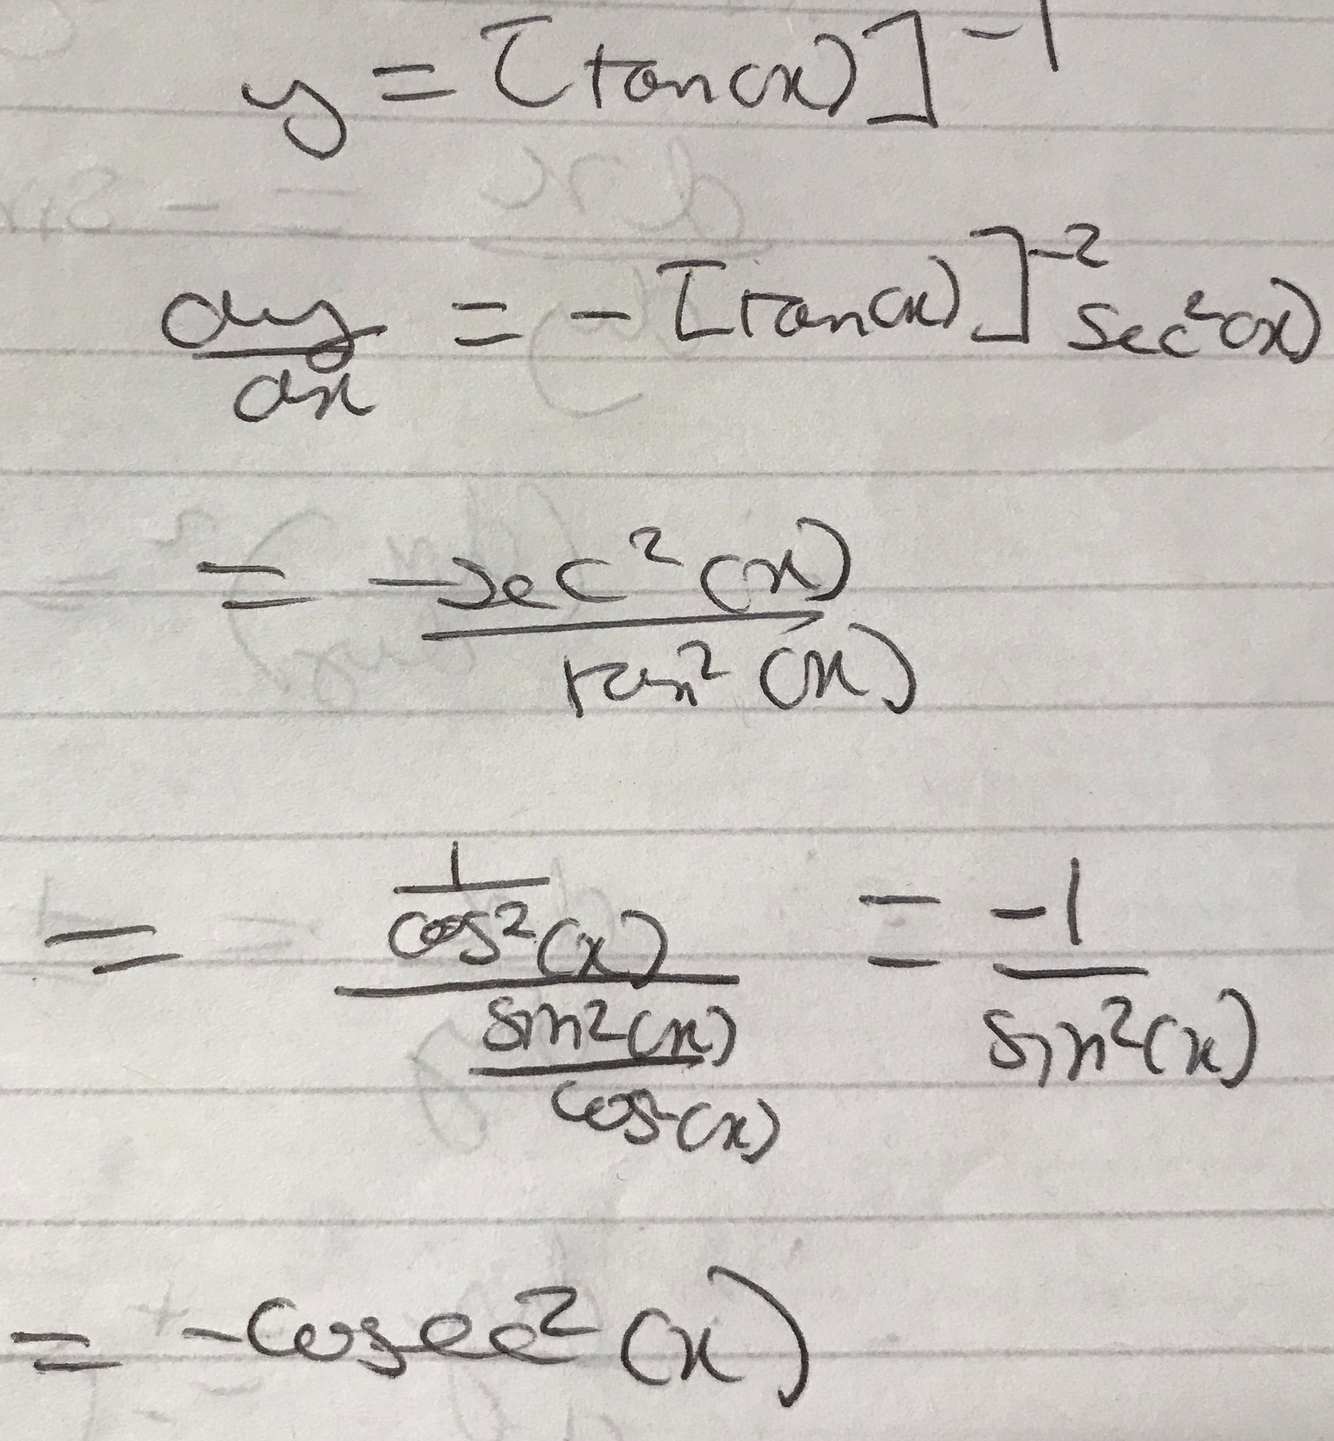 y = [tan(x)]⁻¹
dy/dx = -[tan(x)]⁻² sec²(x)
= -sec²(x)/tan²(x)
= (1/cos²(x))/(sin²(x)/cos²(x)) = -1/sin²(x)
= -cosec²(x)